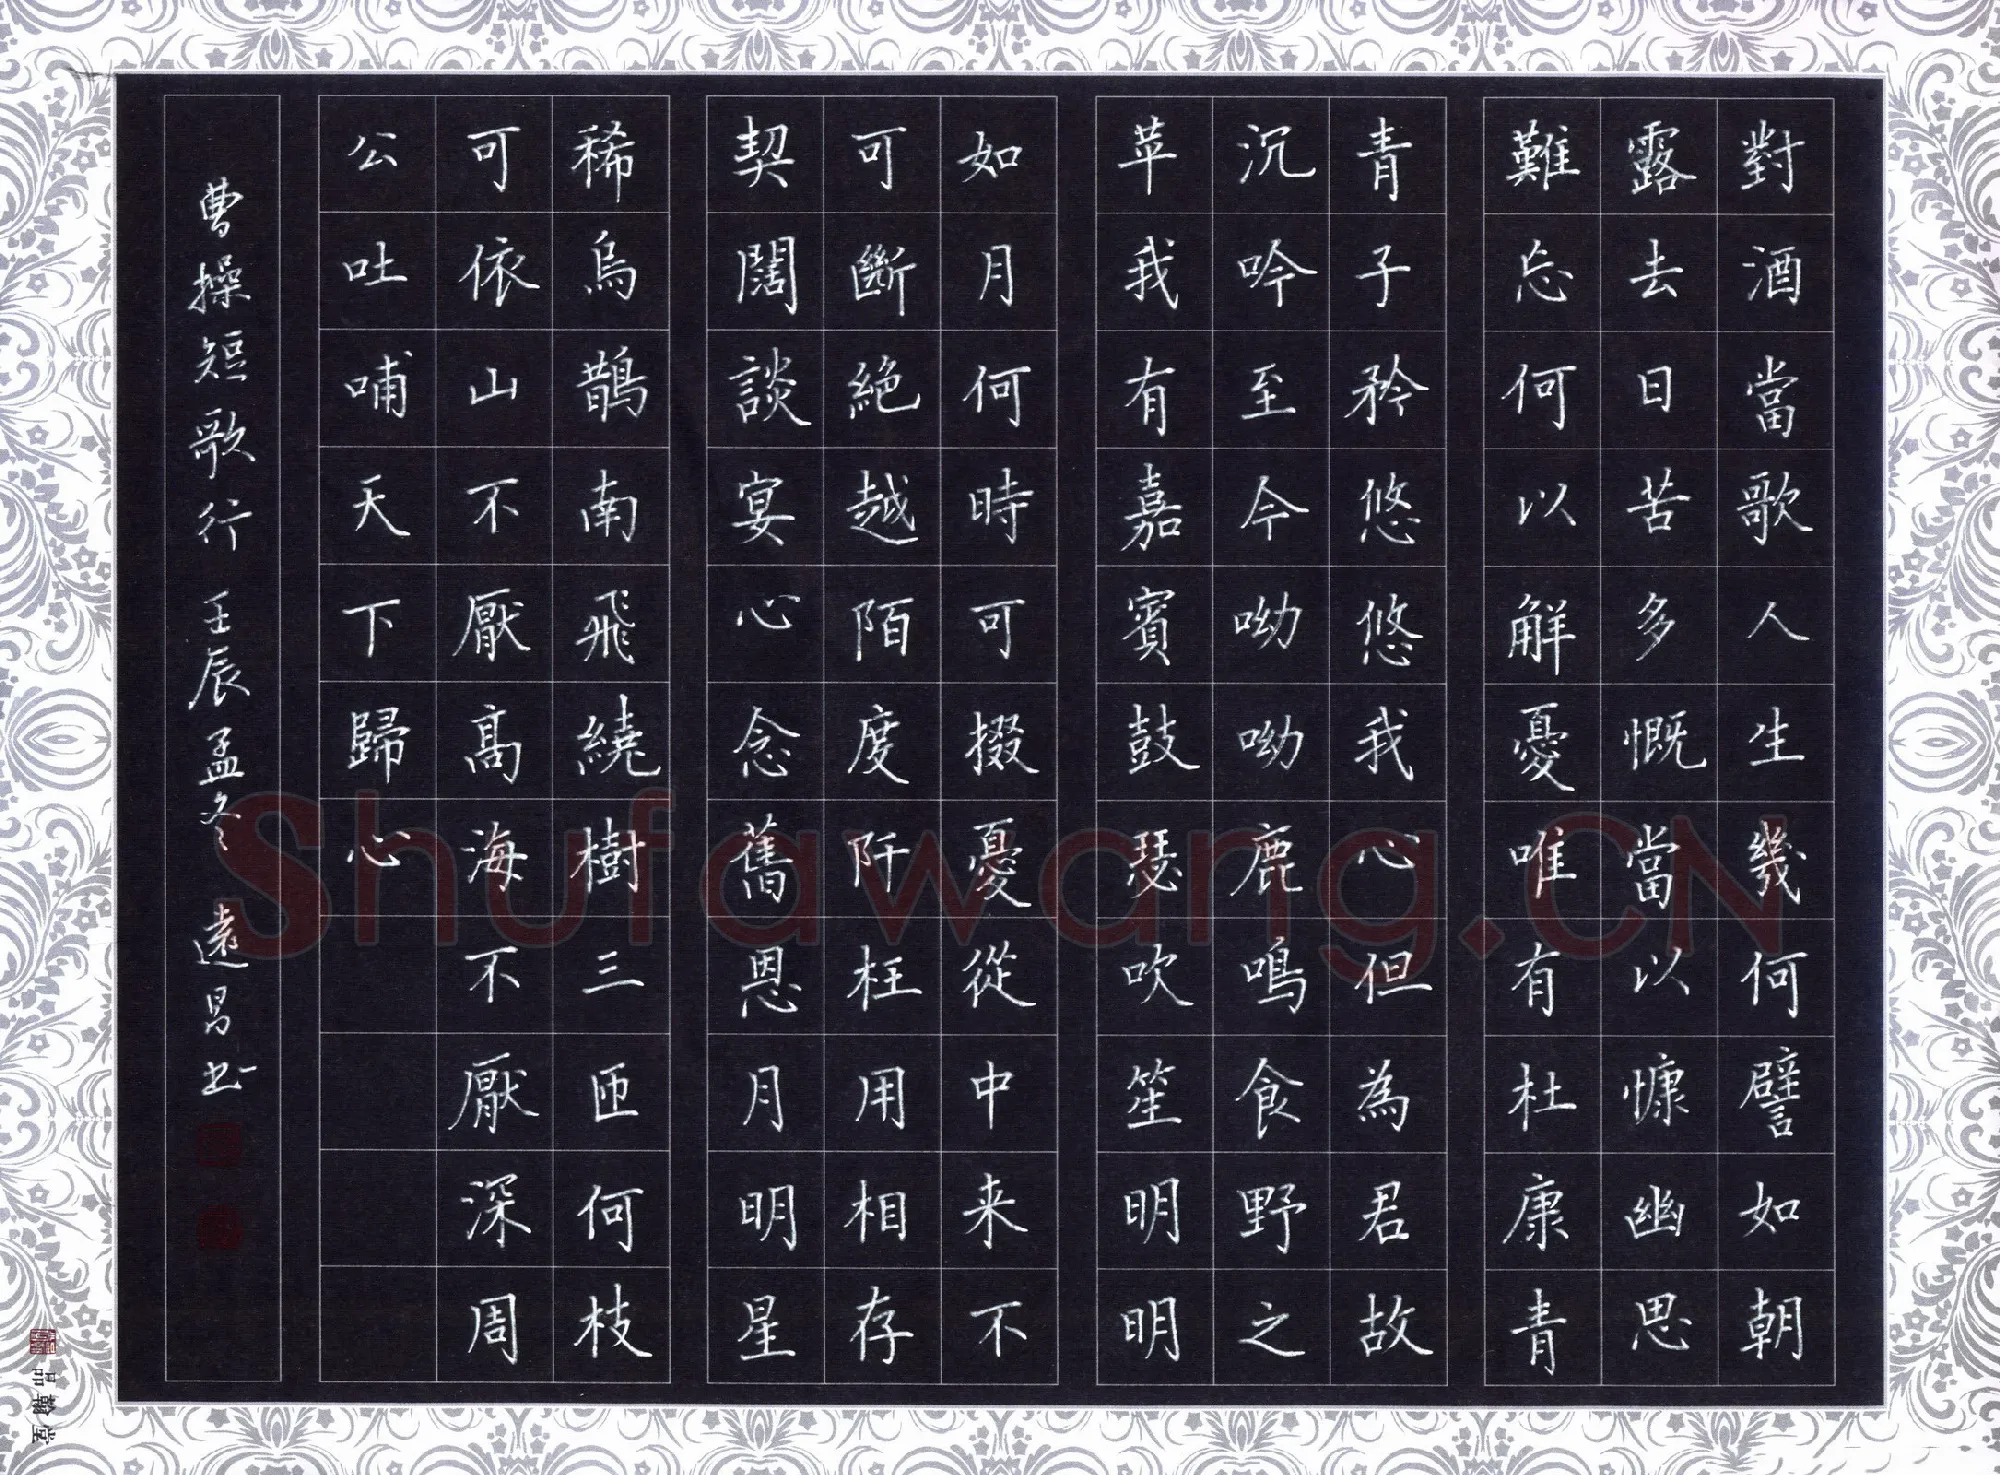 對酒當歌人生幾何譬如朝
露去日苦多慨當以慷幽思
難忘何以解憂唯有杜康青
青子矜悠悠我心但為君故
沉吟至今呦呦鹿鳴食野之
苹我有嘉賓鼓瑟吹笙明明
如月何時可掇憂從中来不
可斷絕越陌度阡枉用相存
契闊談宴心念舊恩月明星
稀烏鵲南飛繞樹三匝何枝
可依山不厭高海不厭深周
公吐哺天下歸心
曹操短歌行 壬辰孟冬 遠昌书
Shufawang.CN
品翰堂